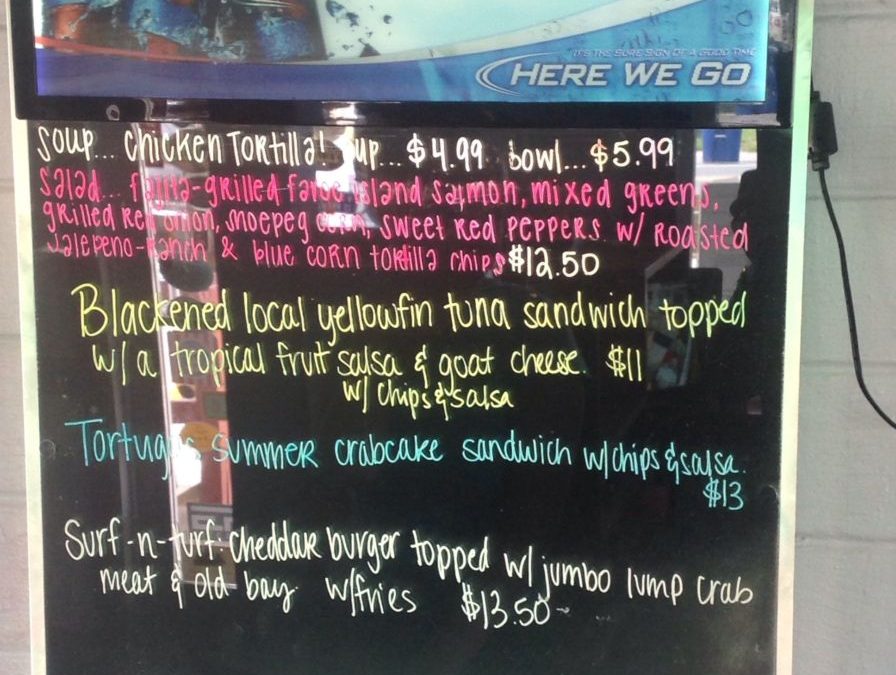 "IT'S THE SURE SIGN OF A GOOD TIME
HERE WE GO
Soup... Chicken Tortilla! Cup... $4.99 bowl... $5.99
Salad... fajita-grilled faroe island salmon, mixed greens,
grilled red onion, shoepeg corn, sweet red peppers w/ roasted
jalepeno-ranch & blue corn tortilla chips $12.50
Blackened local yellowfin tuna sandwich topped
w/ a tropical fruit salsa & goat cheese. $11
w/ chips & salsa
Tortugas summer crabcake sandwich w/chips & salsa.
$13
Surf-n-turf: cheddar burger topped w/ jumbo lump crab
meat & old bay w/fries $13.50